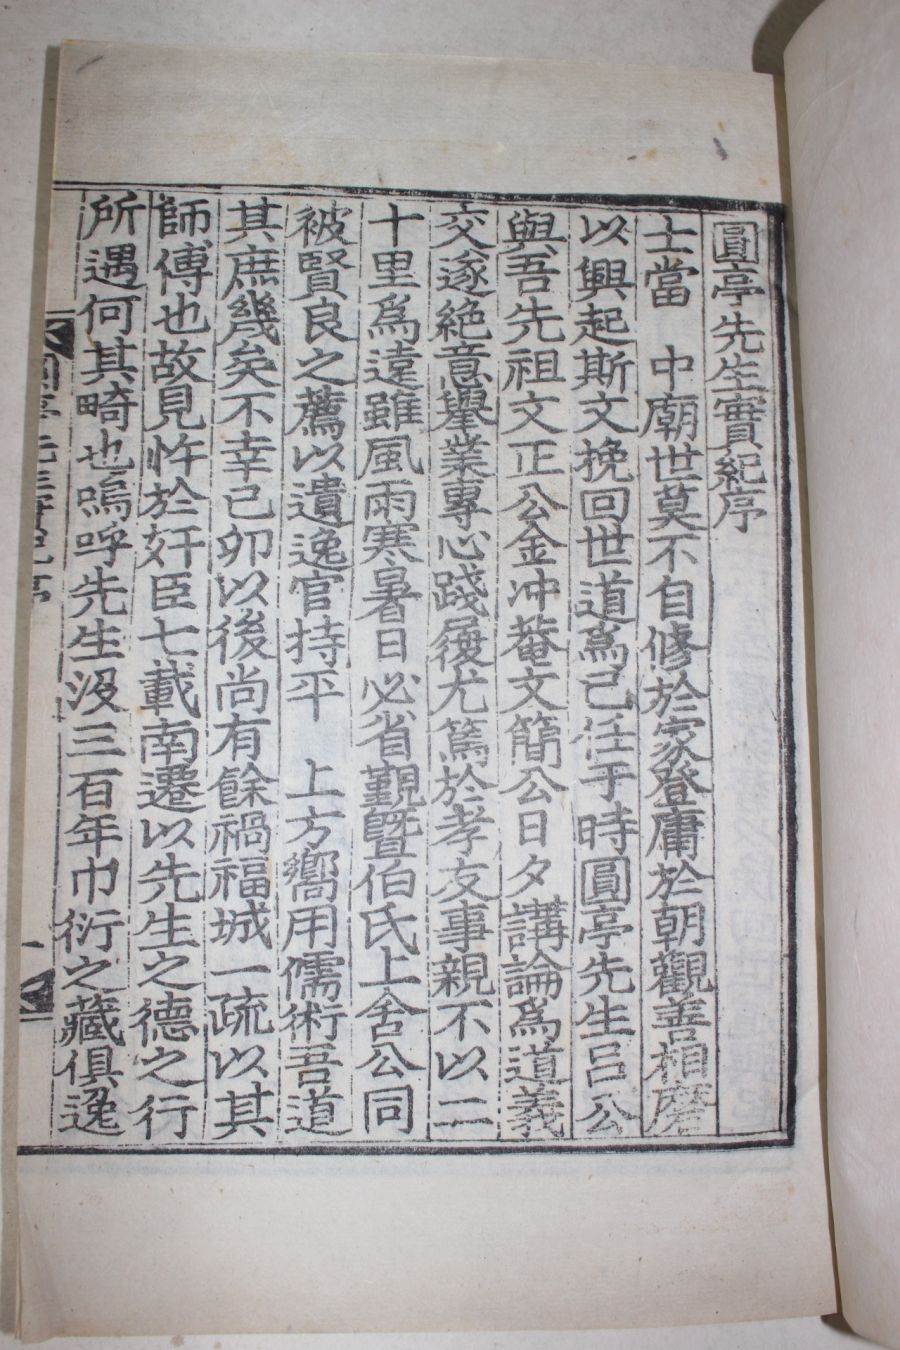 圓亭先生實紀序
士當 中廟世莫不自修於家登庸於朝觀善相磨
以興起斯文挽回世道爲己任于時圓亭先生呂公
與吾先祖文正公金冲菴文簡公日夕講論爲道義
交遂絶意擧業專心踐履尤篤於孝友事親不以二
十里爲遠雖風雨寒暑日必省覲曁伯氏上舍公同
被賢良之薦以遺逸官持平 上方嚮用儒術吾道
其庶幾矣不幸己卯以後尚有餘禍福城一疏以其
師傅也故見忤於奸臣七載南遷以先生之德之行
所遇何其畸也嗚呼先生沒三百年巾衍之藏俱逸